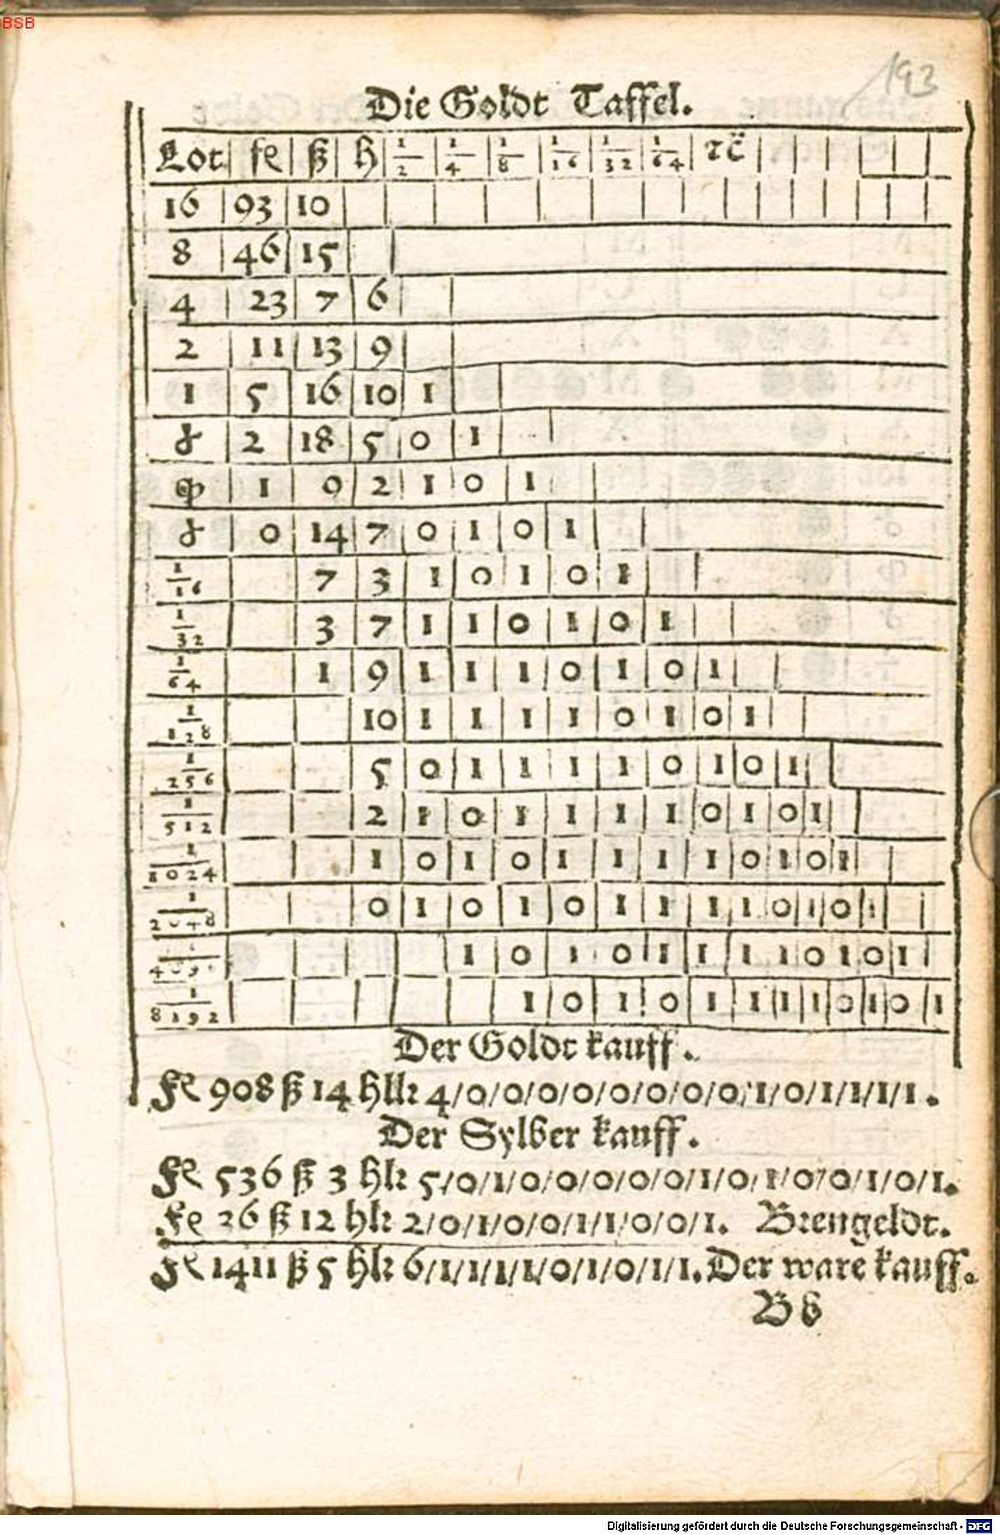 BSB
193
Die Goldt Taffel.
Lot fl ß h 1/2 1/4 1/8 1/16 1/32 1/64 ꝛc̈
16 93 10
8 46 15
4 23 7 6
2 11 13 9
1 5 16 10 1
2 18 5 0 1
1 9 2 1 0 1
0 14 7 0 1 0 1
1/16 7 3 1 0 1 0 1
1/32 3 7 1 1 0 1 0 1
1/64 1 9 1 1 1 0 1 0 1
1/128 10 1 1 1 1 0 1 0 1
1/256 5 0 1 1 1 1 0 1 0 1
1/512 2 1 0 1 1 1 1 0 1 0 1
1/1024 1 0 1 0 1 1 1 1 0 1 0 1
1/2048 0 1 0 1 0 1 1 1 1 0 1 0 1
1 0 1 0 1 1 1 1 0 1 0 1
1/8192 1 0 1 0 1 1 1 1 0 1 0 1
Der Goldt kauff.
Fl 908 ß 14 hllr 4/0/0/0/0/0/0/0/0/1/0/1/1/1/1.
Der Sylber kauff.
Fl 536 ß 3 hlr 5/0/1/0/0/0/0/0/1/0/1/0/0/1/0/1.
Fl 26 ß 12 hlr 2/0/1/0/0/1/1/0/0/1. Brengeldt.
Fl 1411 ß 5 hlr 6/1/1/1/1/0/1/0/1/1. Der ware kauff.
Digitalisierung gefördert durch die Deutsche Forschungsgemeinschaft - DFG